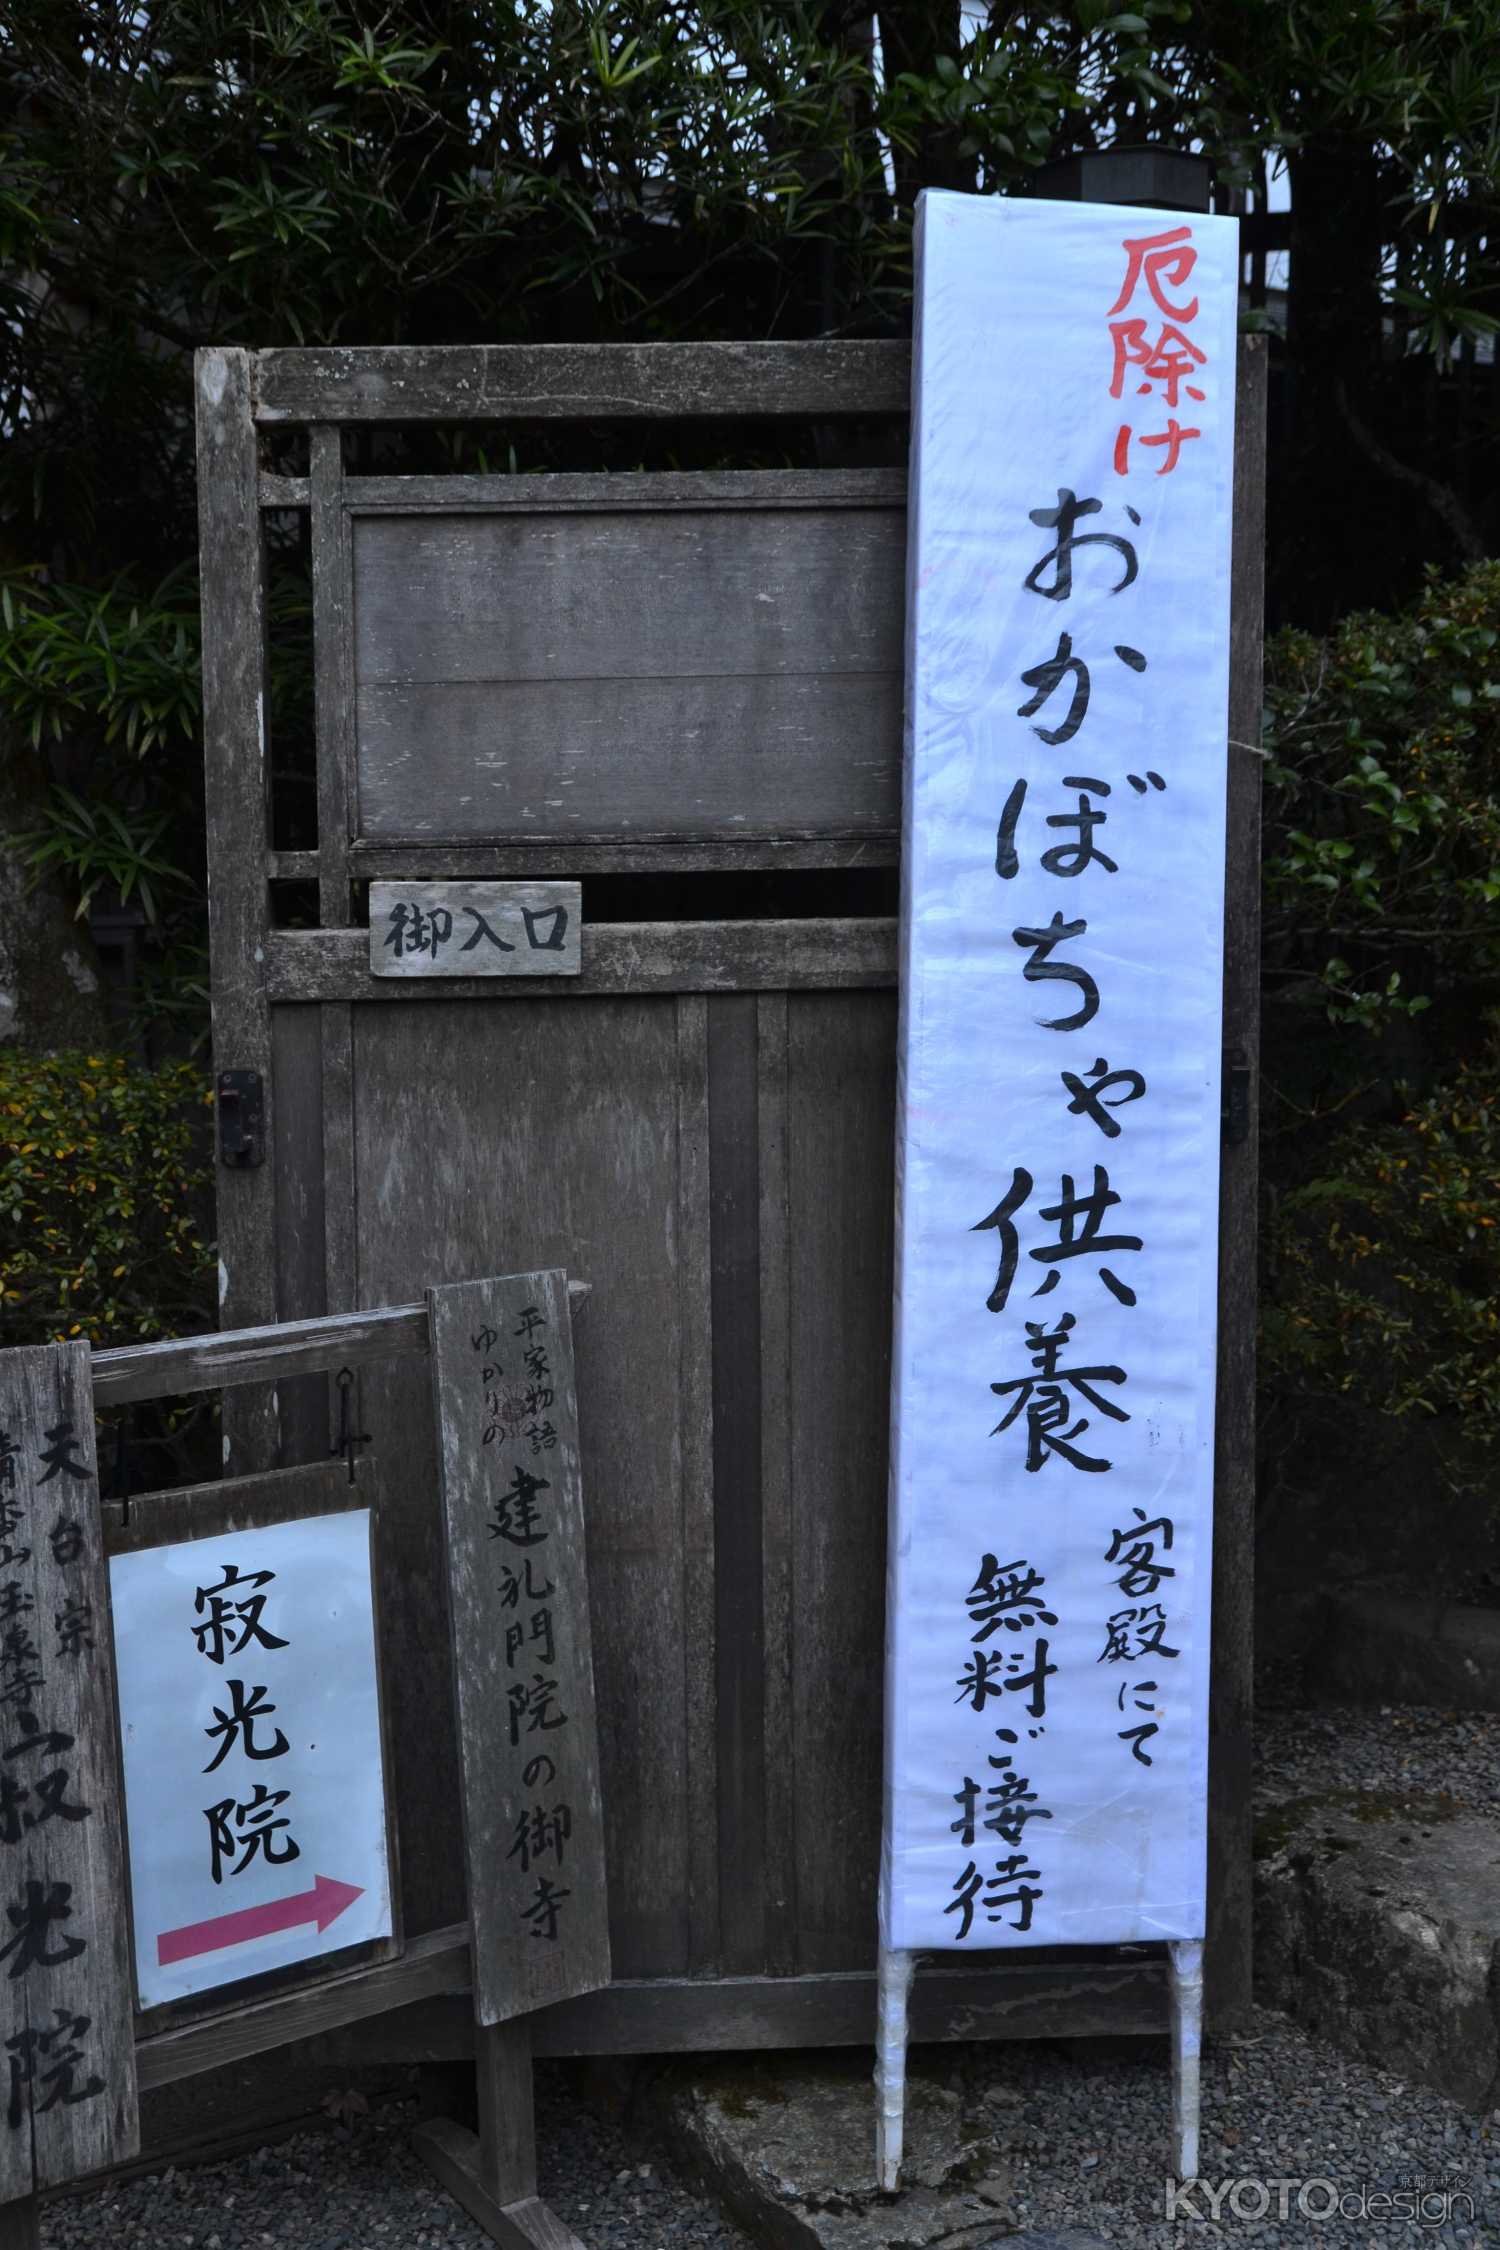 厄除け
おかぼちゃ供養
客殿にて
無料ご接待
御入口
平家物語
ゆかりの
建礼門院の御寺
寂光院
天台宗
清香山玉泉寺
寂光院
京都デザイン
KYOTOdesign